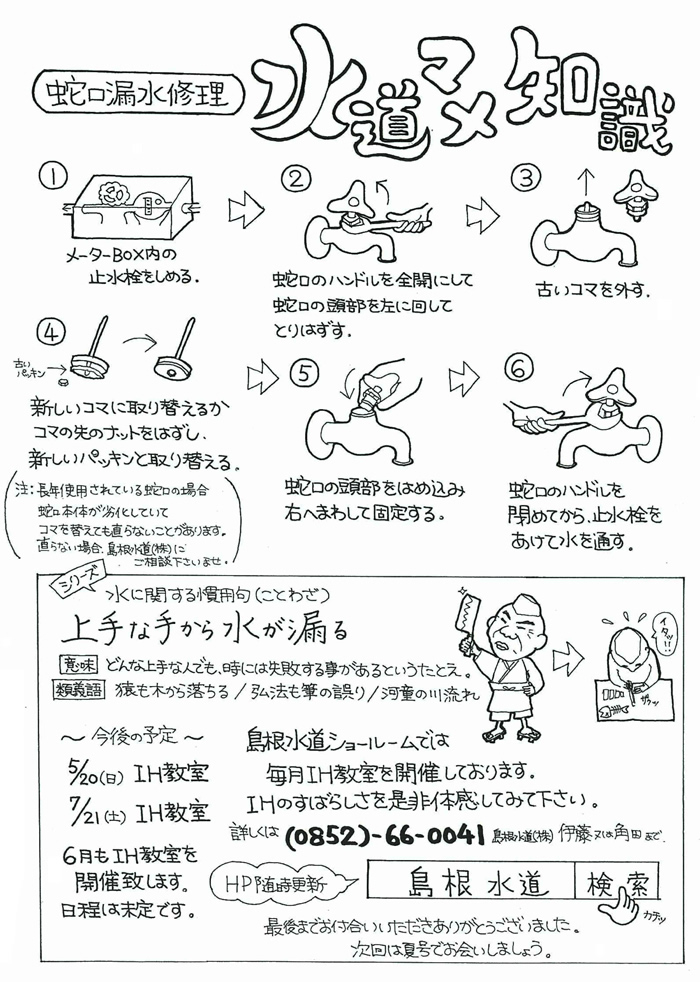 蛇口漏水修理
水道マメ知識
①
メーターBOX内の
止水栓をしめる.
②
蛇口のハンドルを全開にして
蛇口の頭部を左に回して
とりはずす.
③
古いコマを外す.
④
古い
パッキン
新しいコマに取り替えるか
コマの先のナットをはずし、
新しいパッキンと取り替える。
注:長年使用されている蛇口の場合
蛇口本体が劣化していて
コマを替えても直らないことがあります。
直らない場合、島根水道(株)に
ご相談下さいませ。
⑤
蛇口の頭部をはめ込み
右へまわして固定する。
⑥
蛇口のハンドルを
閉めてから、止水栓を
あけて水を通す。
シリーズ
水に関する慣用句(ことわざ)
上手な手から水が漏る
意味 どんな上手な人でも、時には失敗する事があるというたとえ。
類義語 猿も木から落ちる/弘法も筆の誤り/河童の川流れ
イタッ!!
ザクッ
～今後の予定～
5/20(日) IH教室
7/21(土) IH教室
6月もIH教室を
開催致します。
日程は未定です。
島根水道ショールームでは
毎月IH教室を開催しております。
IHのすばらしさを是非体感してみて下さい。
詳しくは (0852)-66-0041 島根水道(株) 伊藤又は角田まで.
HP随時更新
島根水道 検索
カチッ
最後までお付合いいただきありがとうございました。
次回は夏号でお会いしましょう。